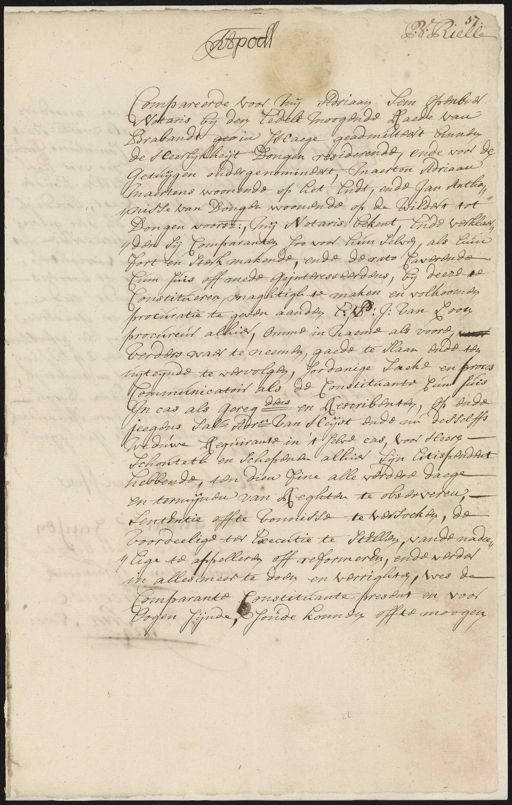 37
Compareerde voor Mij Adriaan
Notaris bij den Edele Moogende Raede van
Brabandt geoin s'Haege geadmitteert binnen
de Heerlijkheijt Dongen resideerende, ende voor de
Getuijgen ondergenomineert Maerten Adriaan
Maertens woonende op het Endt, ende Jan Antho
nisse van Dongen woonende op de tot
Dongen voors:, Mij Notaris bekent, Ende verklaer
den sij Comparanten soo voor hun selve, als hun
sort en sterk makende, ende de rato Caverende
hun huis off mede geinteresseerdens, bij deese te
Constitueren, maghtigh te maken en volkomen
procuratie te geven aanden J: Van Loon
procureur alhier, omme in Naeme als voore,
verders waer te neemen, gaede te slaen ende ten
uijteynde te vervolgen, sodanige Sacke en proces
Communicatoir als de Constituante hun huis
In cas als gereq: dens en Rescribenten, op ende
jeegens Van Heijst ende nu desselffs
Weduwe Requirante in 't selve cas, voor Heere
Schouteth en Schepenen alhier sijn
hebbende, ten dien fine alle verdere daege
en termijnen van Reghten te observeren,
Sententie offte vonnisse te versoeken, de
voordeelige ter Executie te stellen, vande nadee
lige te appelleren off reformeren, ende verder
in alles meer te doen en verrighten, wes de
Comparante Constituante present en voor
oogen sijnde, soude konnen offte moogen